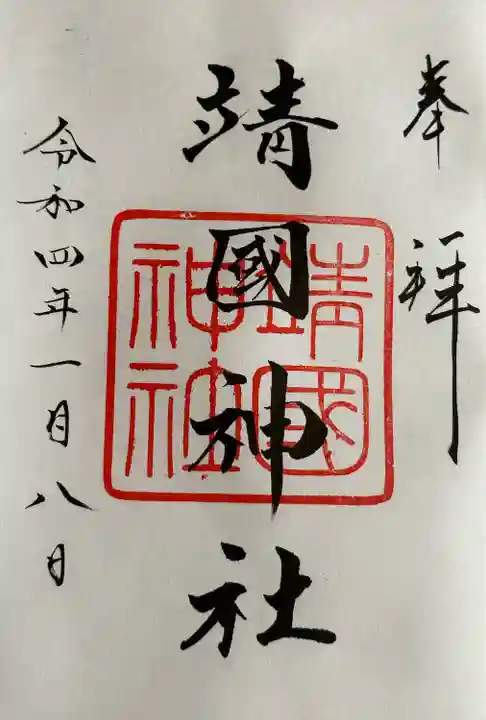 奉拝
靖國神社
靖國
神社
令和四年一月八日